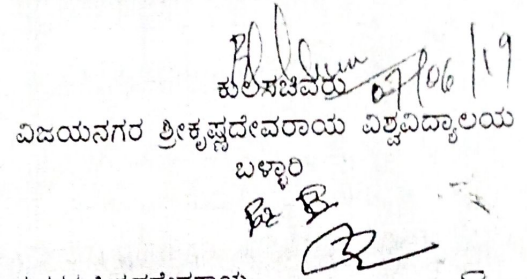 07/06/19
ಕುಲಸಚಿವರು
ವಿಜಯನಗರ ಶ್ರೀಕೃಷ್ಣದೇವರಾಯ ವಿಶ್ವವಿದ್ಯಾಲಯ
ಬಳ್ಳಾರಿ